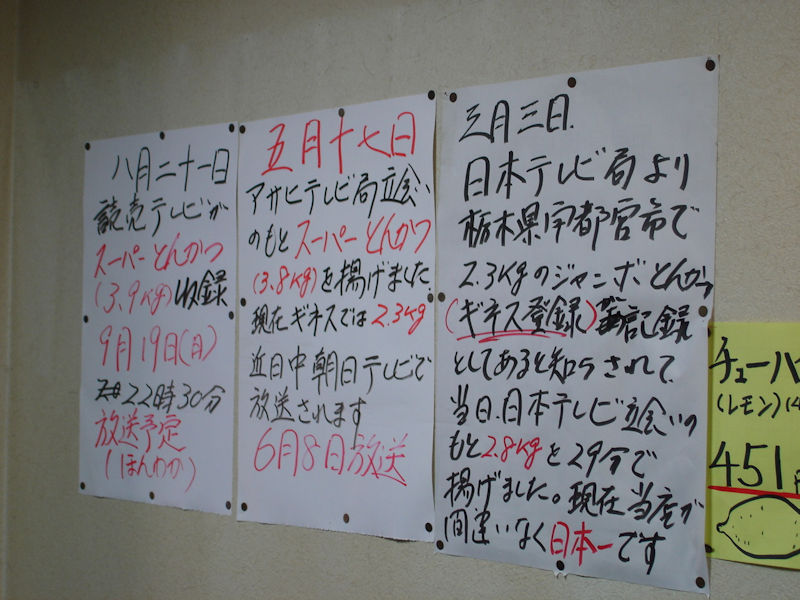 三月三日.
日本テレビ局より
栃木県宇都宮市で
2.3Kgのジャンボとんかつ
(ギネス登録)記録
としてあると知らされて、
当日.日本テレビ立会いの
もと2.8Kgを29分で
揚げました。現在当店が
間違いなく日本一です
五月十七日
アサヒテレビ局立会い
のもとスーパーとんかつ
(3.8Kg)を揚げました
現在ギネスでは2.3Kg
近日中朝日テレビで
放送されます
6月8日放送
八月二十一日
読売テレビが
スーパーとんかつ
(3.9Kg)収録
9月19日(月)
22時30分
放送予定
(ほんわか)
チューハ
(レモン)
451